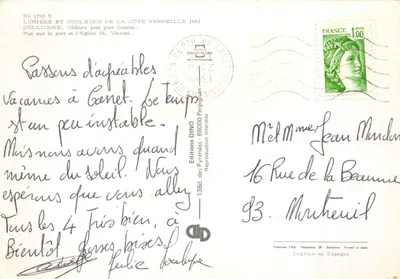 LUMIERE ET COULEURS DE LA COTE VERMEILLE (66)
COLLIOURE. Château petit port Catalan.
Vue sur le port et l'Eglise St. Vincent.
Passons d'agréables
vacances à Canet. Le temps
est un peu instable.
Mais nous avons quand
même du soleil. Nous
espérons que vous allez
Tous les 4 Très bien, à
Bientôt Grosses bises
Editions DINO
13Bd. des Pyrénées - 66000 Perpignan
Reproduction interdite
FRANCE
1,00
Mr et Mme Jean
16 Rue de la Beaune
93. Montreuil